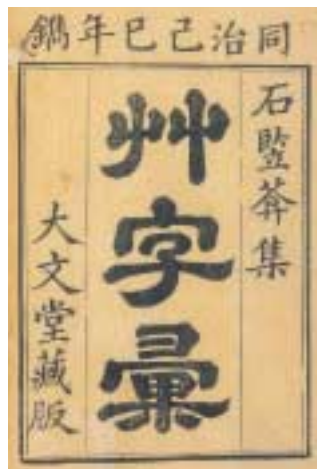 同治己巳年鐫
石豎菴集
艸字彙
大文堂藏版